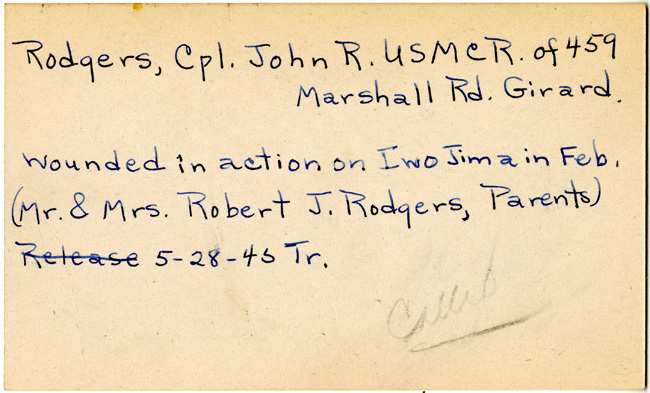 Rodgers, Cpl. John R. USMCR. of 459
Marshall Rd. Girard.
wounded in action on Iwo Jima in Feb.
(Mr. & Mrs. Robert J. Rodgers, Parents)
Release 5-28-45 Tr.